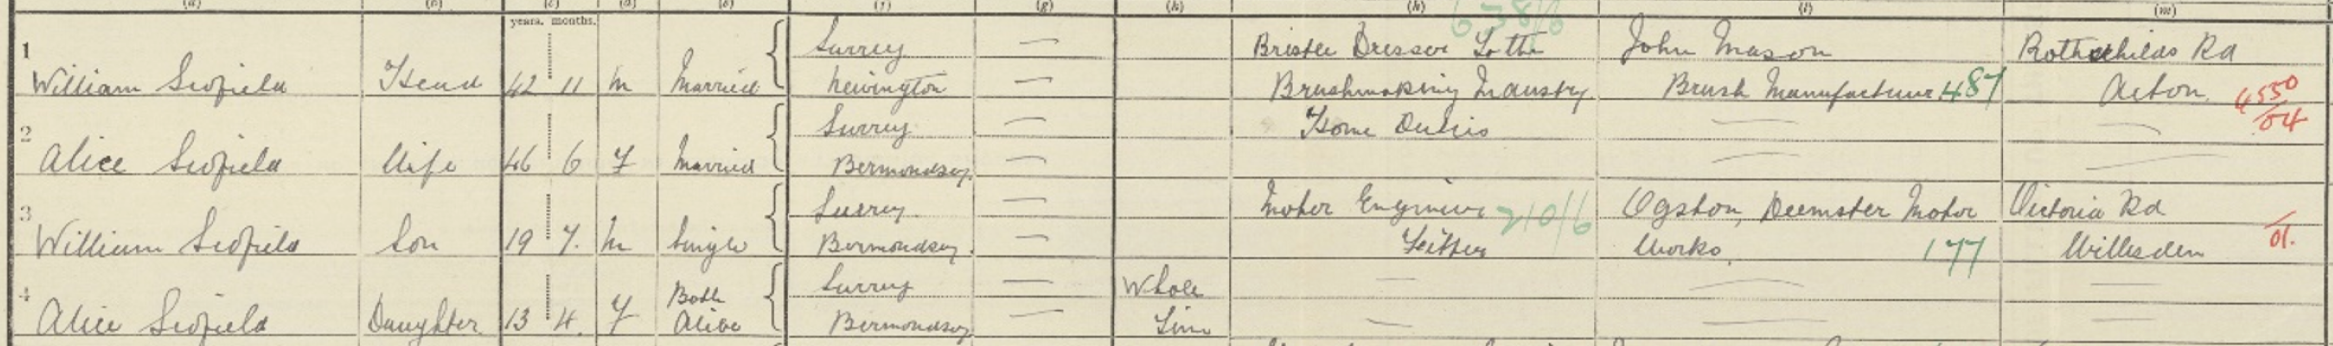 (a) (b) (c) (d) (e) (f) (g) (h) (k) (l) (m)
years. months.
63816
1 Surrey — Bristle Dresser To the John Mason Rothschilds Rd
William Scofield Head 42 11 M Married Newington — Brushmaking Industry. Brush Manufacturer 487 Acton. 4550/04
2 Surrey — Home Duties — —
Alice Scofield Wife 46 6 F Married Bermondsey. — — —
3 Surrey. — Motor Engineer 210/6 Ogston, Deemster Motor Victoria Rd
William Scofield Son 19 7. M Single Bermondsey. — Fitter Works. 177 Willesden /01.
4 Both Surrey — Whole — — —
Alice Scofield Daughter 13 4. F Alive Bermondsey — Time — — —